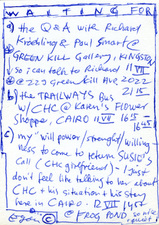 WAITING FOR
a) the Q & A with Richard
Kroehling & Paul Smart @
GREEN KILL Gallery, KINGSTON
so I can talk to Richard 11 VII
@ 2229 Green Kill Ave 2022
b) the TRAILWAYS Bus 2115
w/CHC @ Karen's Flower
Shoppe, CAIRO 11 VII 1615
1645
c) my "will power/strenght/willing
ness to come to return SUSIE'S
call (CHC girlfriend) - I just
don't feel like telling to her about
CHC + his situation + his stay
here in CAIRO. 12 VII 1451
@ FROG POND